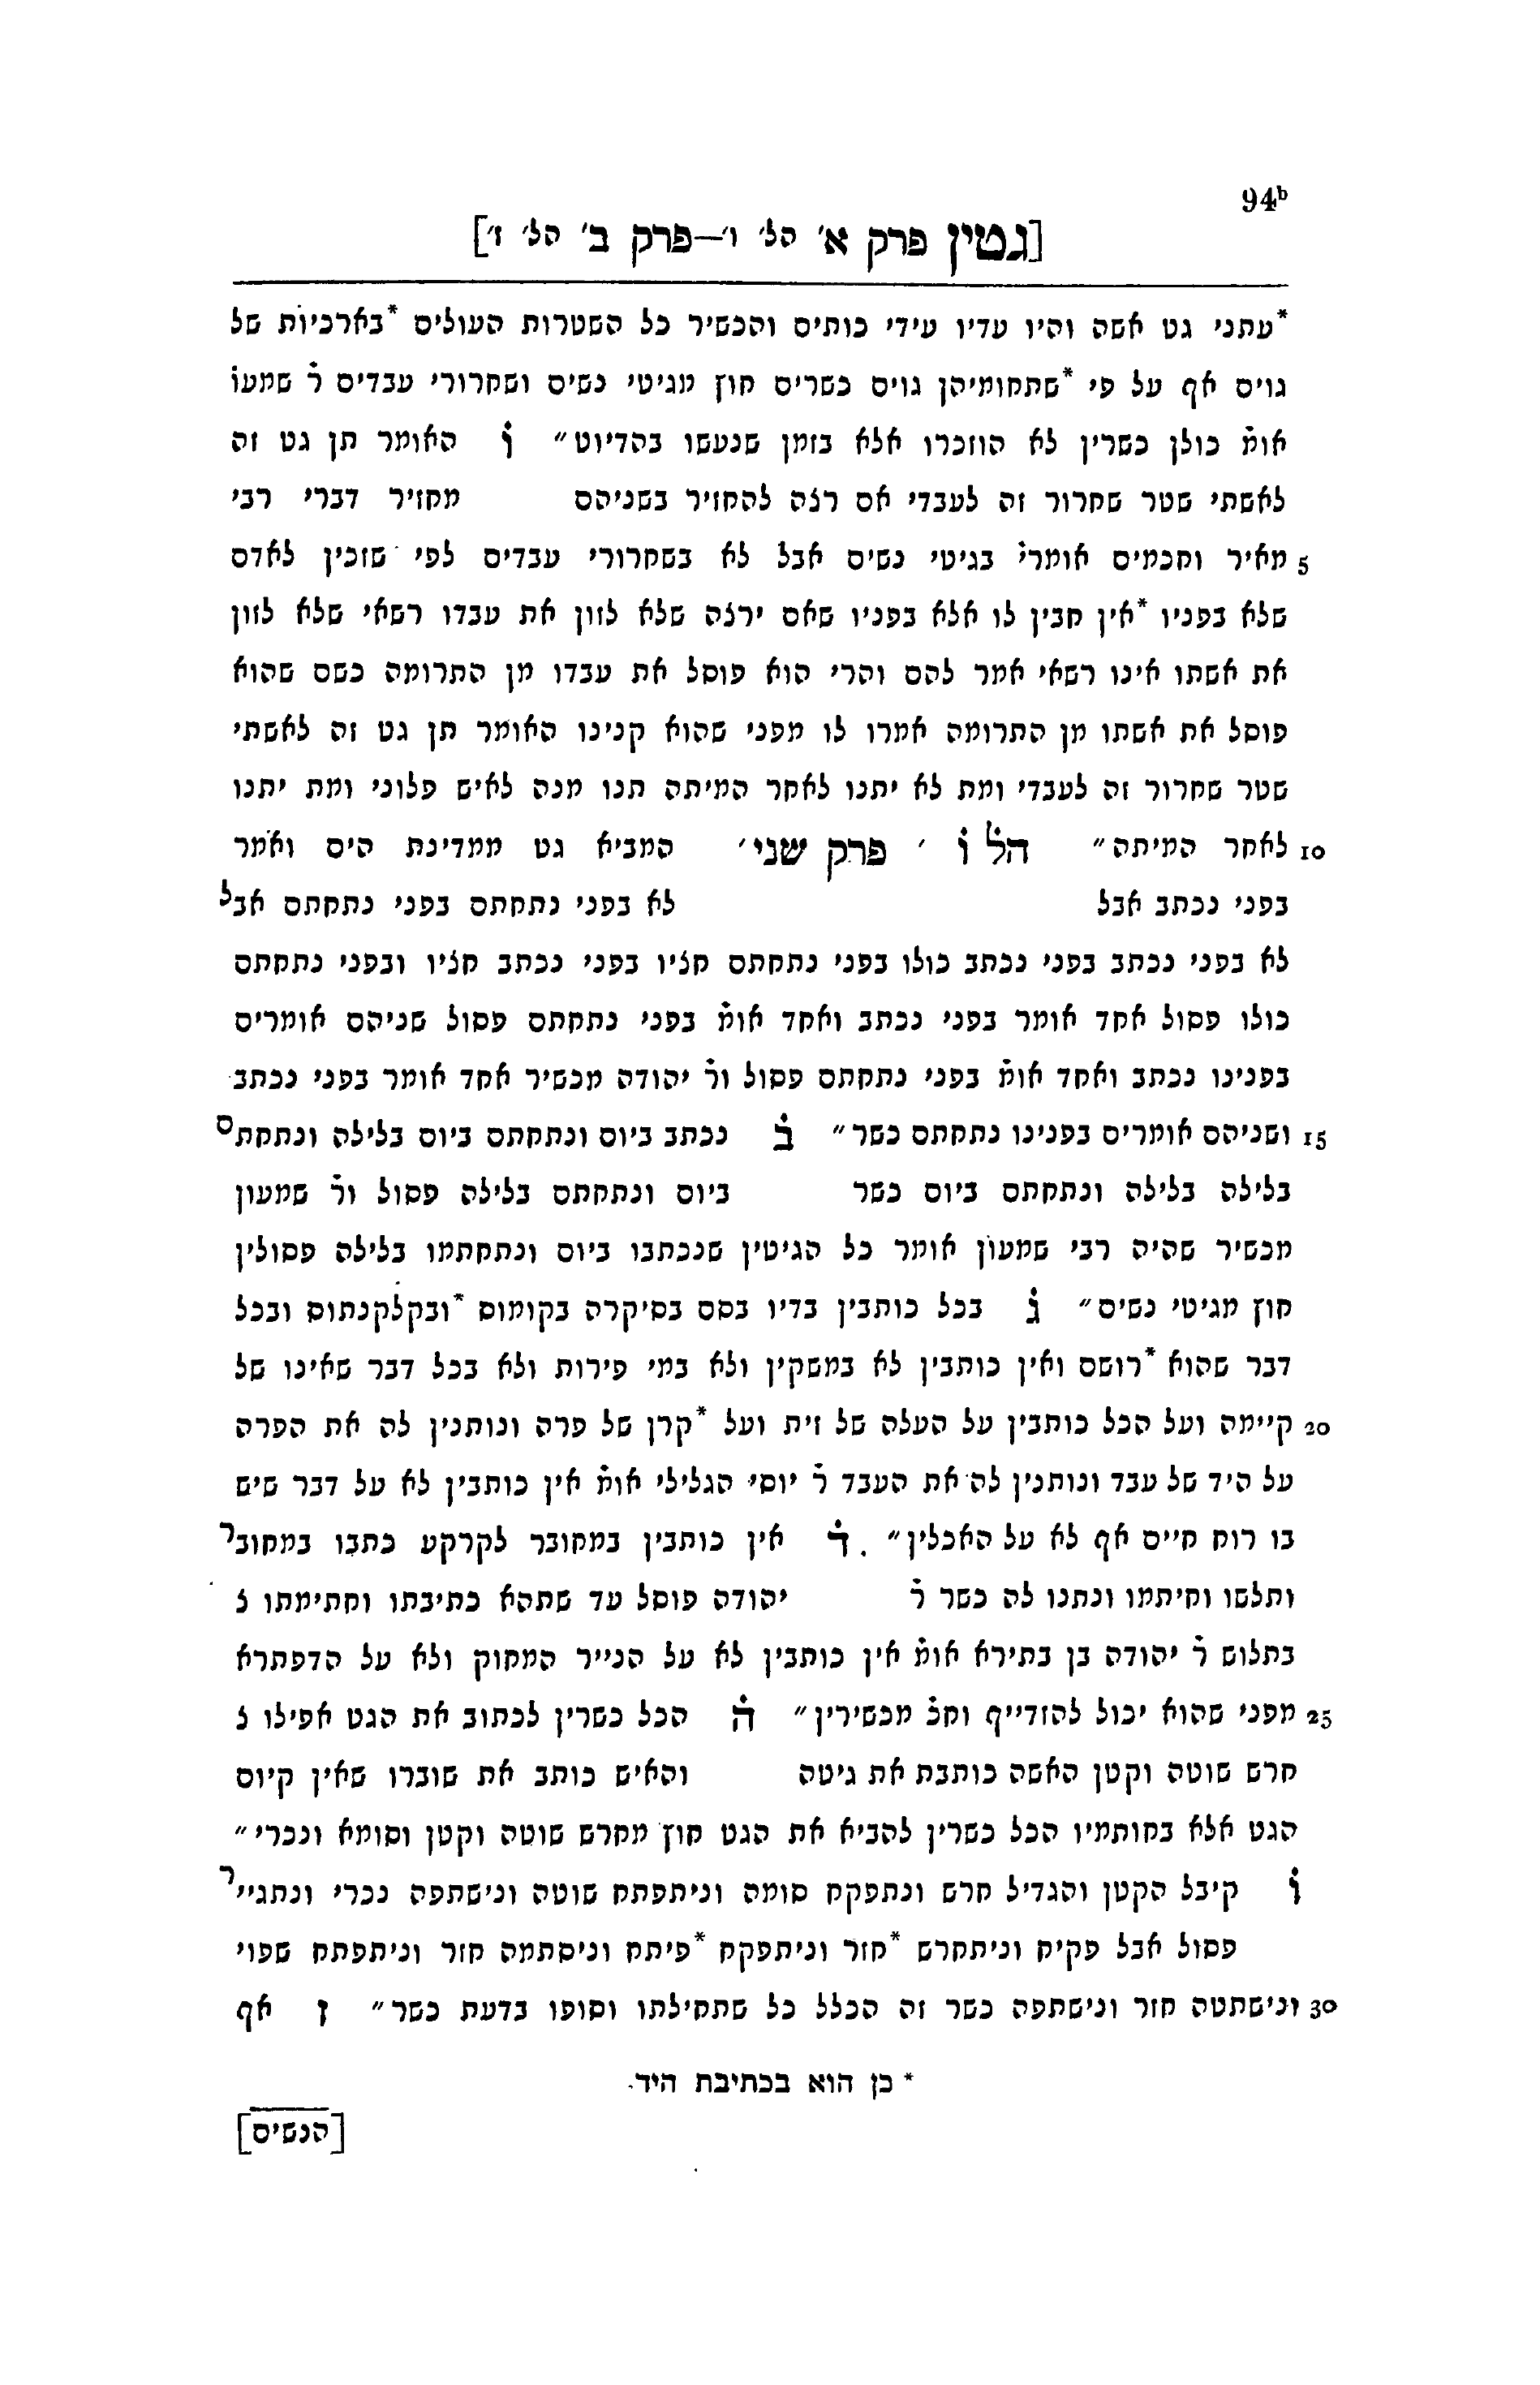 94b
[גטין פרק א׳ הל׳ ו׳—פרק ב׳ הל׳ ז׳]
*עתני גט אשה והיו עדיו עידי כותים והכשיר כל השטרות העולים *בארכיות של
גוים אף על פי *שתחומיהן גוים כשרים חוץ מגיטי נשים ושחרורי עבדים ר̇ שמעו̇
אומ̇ כולן כשרין לא הוזכרו אלא בזמן שנעשו בהדיוט״ ו̇ האומר תן גט זה
לאשתי שטר שחרור זה לעבדי אם רצה להחזיר בשניהם מחזיר דברי רבי
5 מאיר וחכמים אומרי̇ בגיטי נשים אבל לא בשחרורי עבדים לפי שזכין לאדם
שלא בפניו *אין חבין לו אלא בפניו שאם ירצה שלא לזון את עבדו רשאי שלא לזון
את אשתו אינו רשאי אמר להם והרי הוא פוסל את עבדו מן התרומה כשם שהוא
פוסל את אשתו מן התרומה אמרו לו מפני שהוא קנינו האומר תן גט זה לאשתי
שטר שחרור זה לעבדי ומת לא יתנו לאחר המיתה תנו מנה לאיש פלוני ומת יתנו
10 לאחר המיתה״ הל̇ ו̇ ׳ פרק שני׳ המביא גט ממדינת הים ואמר
בפני נכתב אבל לא בפני נתחתם בפני נתחתם אבל
לא בפני נכתב בפני נכתב כולו בפני נתחתם חציו בפני נכתב חציו ובפני נתחתם
כולו פסול אחד אומר בפני נכתב ואחד אומ̇ בפני נתחתם פסול שניהם אומרים
בפנינו נכתב ואחד אומ̇ בפני נתחתם פסול ור̇ יהודה מכשיר אחד אומר בפני נכתב
15 ושניהם אומרים בפנינו נתחתם כשר״ ב̇ נכתב ביום ונתחתם ביום בלילה ונתחתם
בלילה בלילה ונתחתם ביום כשר ביום ונתחתם בלילה פסול ור̇ שמעון
מכשיר שהיה רבי שמעון אומר כל הגיטין שנכתבו ביום ונתחתמו בלילה פסולין
חוץ מגיטי נשים״ ג̇ בכל כותבין בדיו בסם בסיקרה בקומוס *ובקלקנתוס ובכל
דבר שהוא *רושם ואין כותבין לא במשקין ולא במי פירות ולא בכל דבר שאינו של
20 קיימה ועל הכל כותבין על העלה של זית ועל *קרן של פרה ונותנין לה את הפרה
על היד של עבד ונותנין לה את העבד ר̇ יוסי הגלילי אומ̇ אין כותבין לא על דבר שיש
בו רוח חיים אף לא על האכלין״. ד̇ אין כותבין במחובר לקרקע כתבו במחובר
ותלשו וחיתמו ונתנו לה כשר ר̇ יהודה פוסל עד שתהא כתיבתו וחתימתו צ
בתלוש ר̇ יהודה בן בתירא אומ̇ אין כותבין לא על הנייר המחוק ולא על הדפתרא
25 מפני שהוא יכול להזדייף וחכ̇ מכשירין״ ה̇ הכל כשרין לכתוב את הגט אפילו צ
חרש שוטה וקטן האשה כותבת את גיטה והאיש כותב את שוברו שאין קיום
הגט אלא בחותמיו הכל כשרין להביא את הגט חוץ מחרש שוטה וקטן וסומא ונכרי״
ו̇ קיבל הקטן והגדיל חרש ונתפקח סומה וניתפתח שוטה ונישתפה נכרי ונתגייר
פסול אבל פקיח וניתחרש *חזר וניתפקח *פיתח וניסתמה חזר וניתפתח שפוי
30 ונישתטה חזר ונישתפה כשר זה הכלל כל שתחילתו וסופו בדעת כשר״ ז אף
* כן הוא בכתיבת היד.
[הנשים]